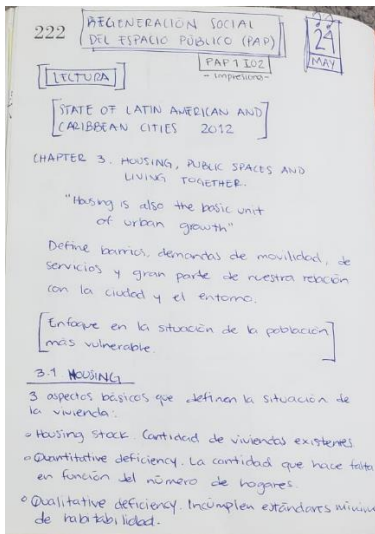 222
REGENERACIÓN SOCIAL
DEL ESPACIO PÚBLICO (PAP)
24
MAY
PAP 1 I02
LECTURA
STATE OF LATIN AMERICAN AND
CARIBBEAN CITIES 2012
CHAPTER 3. HOUSING, PUBLIC SPACES AND
LIVING TOGETHER.
"Housing is also the basic unit
of urban growth"
Define barrios, demandas de movilidad, de
servicios y gran parte de nuestra relación
con la ciudad y el entorno.
Enfoque en la situación de la población
más vulnerable.
3.1 HOUSING
3 aspectos básicos que definen la situación de
la vivienda:
Housing stock. Cantidad de viviendas existentes
Quantitative deficiency. La cantidad que hace falta
en función del número de hogares.
Qualitative deficiency. Incumplen estándares mínimos
de habitabilidad.